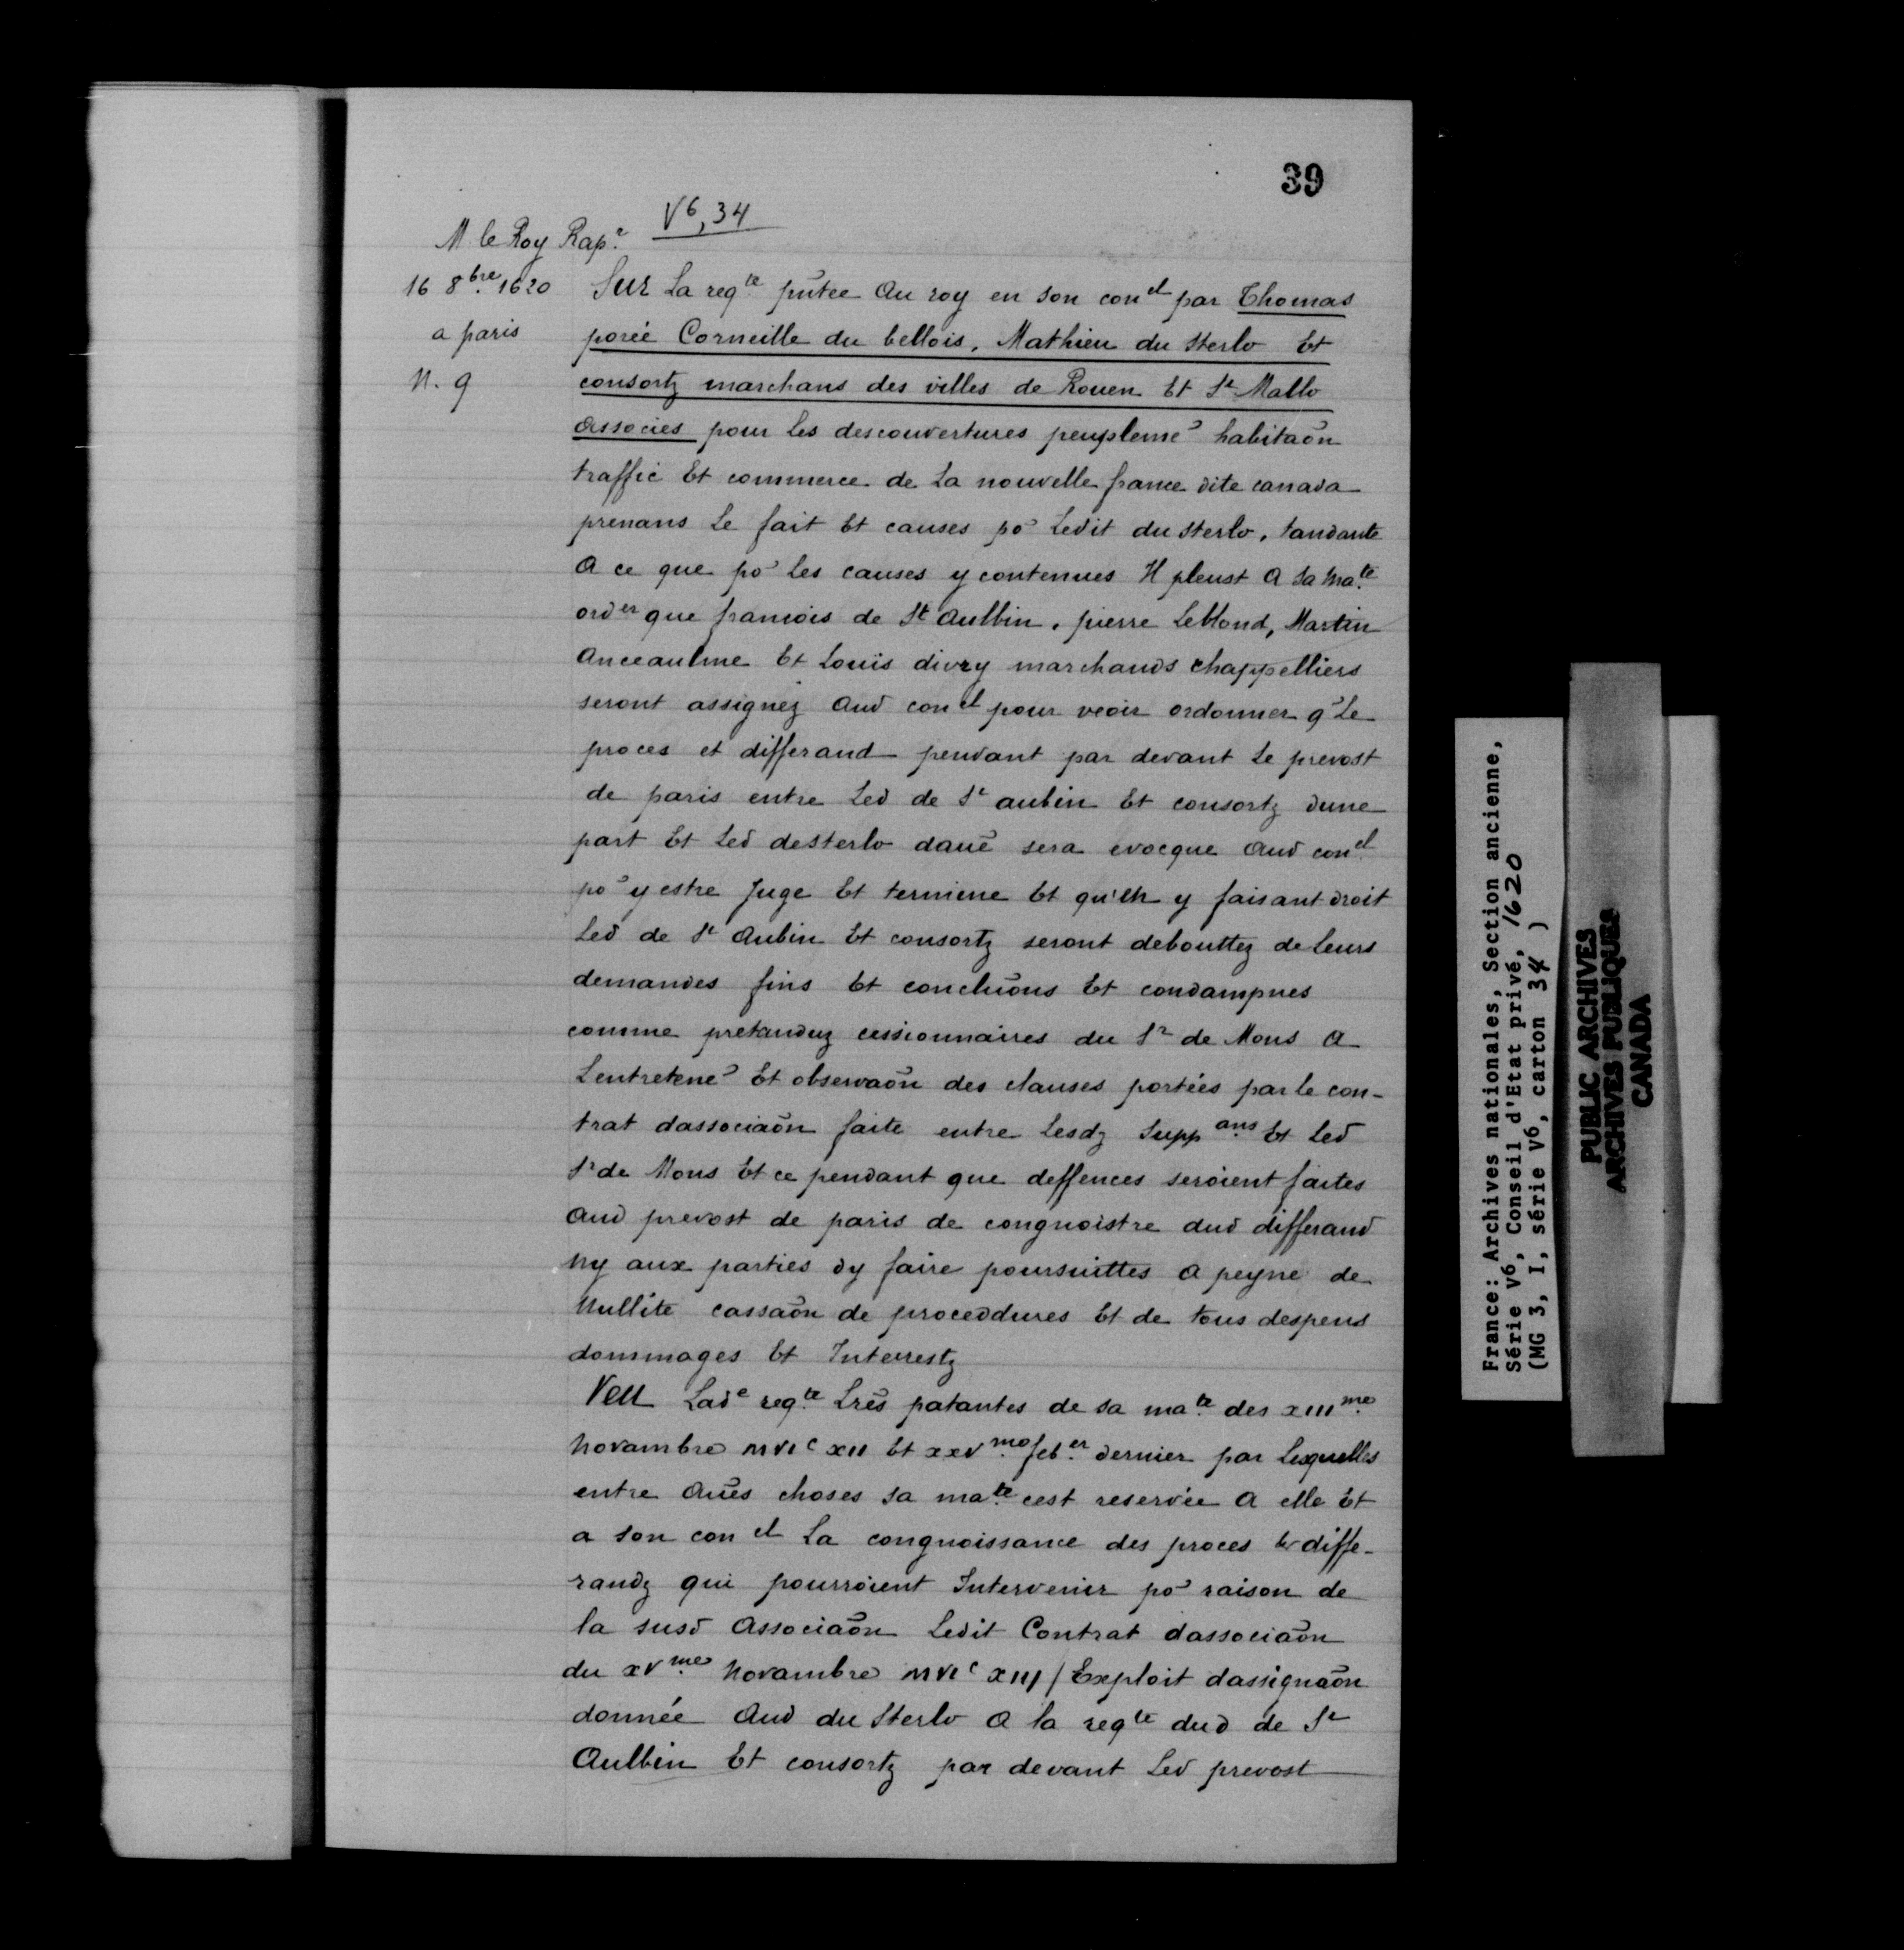 39
V⁶, 34
M le Roy Rapʳ.
16 8ᵇʳᵉ. 1620
a paris
N. 9
Sur La reqᵗᵉ pn̄tee Au roy en son conᵉˡ par Thomas
porée Corneille du bellois, Mathieu du Sterlo Et
consortz marchans des villes de Rouen Et Sᵗ Mallo
associes pour Les descouvertures peupleme᾽ habitaōn
traffic Et commerce de La nouvelle france dite canada
prenans Le fait Et causes po᾽ Ledit du Sterlo, tandante
A ce que po᾽ Les causes y contenues Il pleust A Sa Maᵗᵉ.
ordᵉʳ que francois de Sᵗ Aulbin, pierre Leblond, Martin
Anceaulme Et Louis divry marchands chappelliers
seront assignez Aud conᵉˡ pour veoir ordonner q᾽ Le
proces et differand pendant par devant Le prevost
de paris entre Led de Sᵗ aubin Et consortz dune
part Et Led desterlo dauē sera evocque Aud conᵉˡ
po᾽ y estre Juge Et termine Et qu'en y faisant droit
Led de Sᵗ Aubin Et consortz seront debouttez de Leurs
demandes fins Et conclūons Et condampnes
comme pretanduz cessionnaires du Sʳ de Mons A
Lentretene᾽ Et observaōn des clauses portées par le con-
trat dassociaōn faite entre Lesdz Suppᵃⁿˢ. Et Led
Sʳ de Mons Et ce pendant que deffences seroient faites
Aud prevost de paris de congnoistre dud differand
Ny aux parties dy faire poursuittes a peyne de
Nullite cassaōn de proceddures Et de tous despens
dommages Et Interrestz
Veu Ladᵉ reqᵗᵉ. Lrēs patantes de sa maᵗᵉ. des xiiiᵐᵉ.
Novambre mviᶜ xii Et xxvᵐᵉ. febᵉʳ. dernier par Lesquelles
entre Auēs choses sa maᵗᵉ. cest reservée A elle Et
a son conᵉˡ La congnoissance des proces Et diffe-
randz qui pourroient Intervenir po᾽ raison de
la susd Associaōn Ledit Contrat dassociaōn
du xvᵐᵉ. Novambre mviᶜ xiii / Exploit dassignaōn
donnée Aud du Sterlo A la reqᵗᵉ dud de Sᵗ
Aulbin Et consortz par devant Led prevost
France: Archives nationales, Section ancienne,
Série V6, Conseil d'Etat privé, 1620
(MG 3, I, série V6, carton 34 )
PUBLIC ARCHIVES
ARCHIVES PUBLIQUES
CANADA